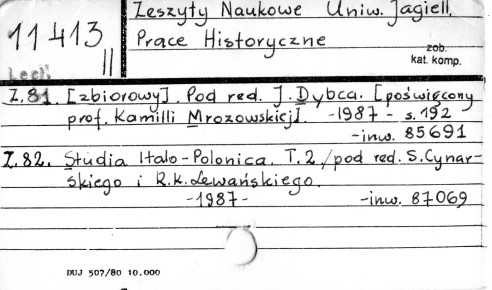 Zeszyty Naukowe Uniw. Jagiell.
11413
II
Prace Historyczne
zob.
kat. komp.
Z.81. [zbiorowy]. Pod red. J. Dybca. [poświęcony
prof. Kamilli Mrozowskiej]. -1987- s. 192
-inw. 85691
Z.82. Studia Italo-Polonica. T.2/pod red. S. Cynar-
skiego i R.K. Lewańskiego.
-1987- -inw. 87069
DUJ 507/80 10.000